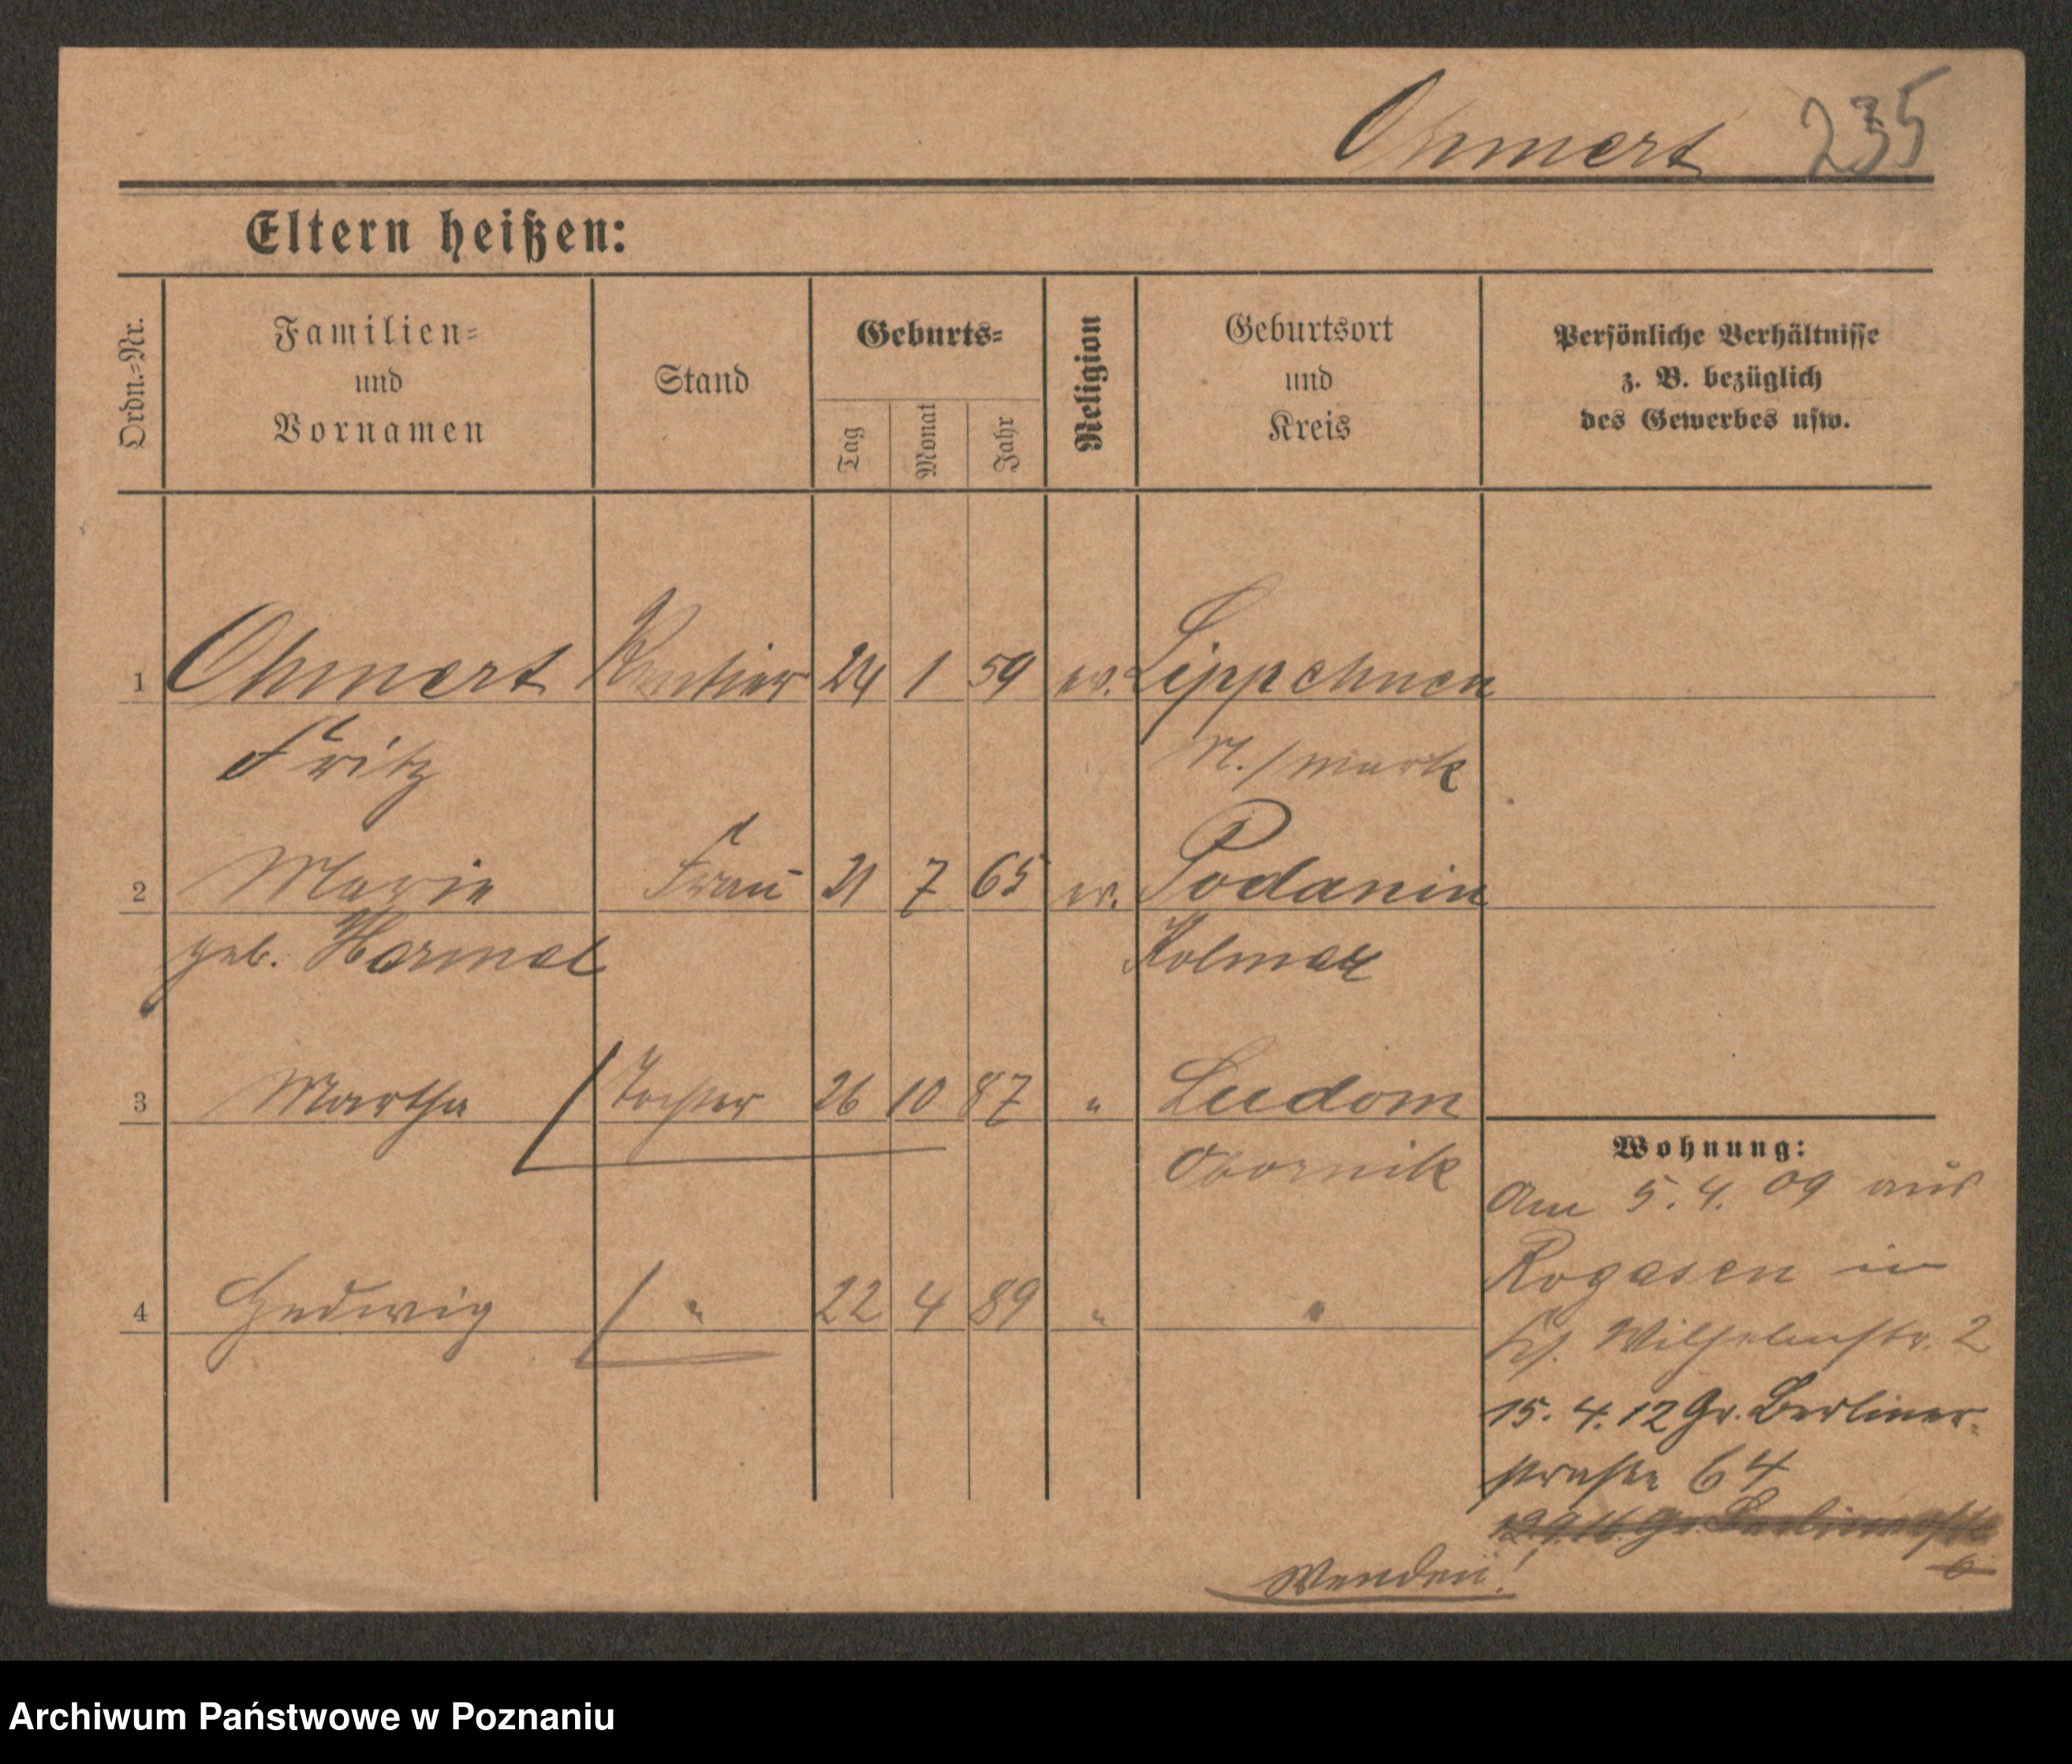 Ohmert 235
Eltern heißen:
Ordn.=Nr.
Familien=
und
Vornamen
Stand
Geburts=
Tag
Monat
Jahr
Religion
Geburtsort
und
Kreis
Persönliche Verhältnisse
z. B. bezüglich
des Gewerbes usw.
1 Ohmert Rentier 24 1 59 ev. Lippehnen
Fritz N./mark
2 Marie Frau 21 7 65 ev. Podanin
geb. Hormel Kolmar
3 Martha Tochter 26 10 87 " Ludom
Obornik
4 Hedwig " 22 4 89 " "
Wohnung:
Am 5.4.09 aus
Rogasen in
Wilhelmstr. 2
15.4.12 Gr. Berliner-
straße 64
Gr. Berlinerstr
6
Wenden!
Archiwum Państwowe w Poznaniu